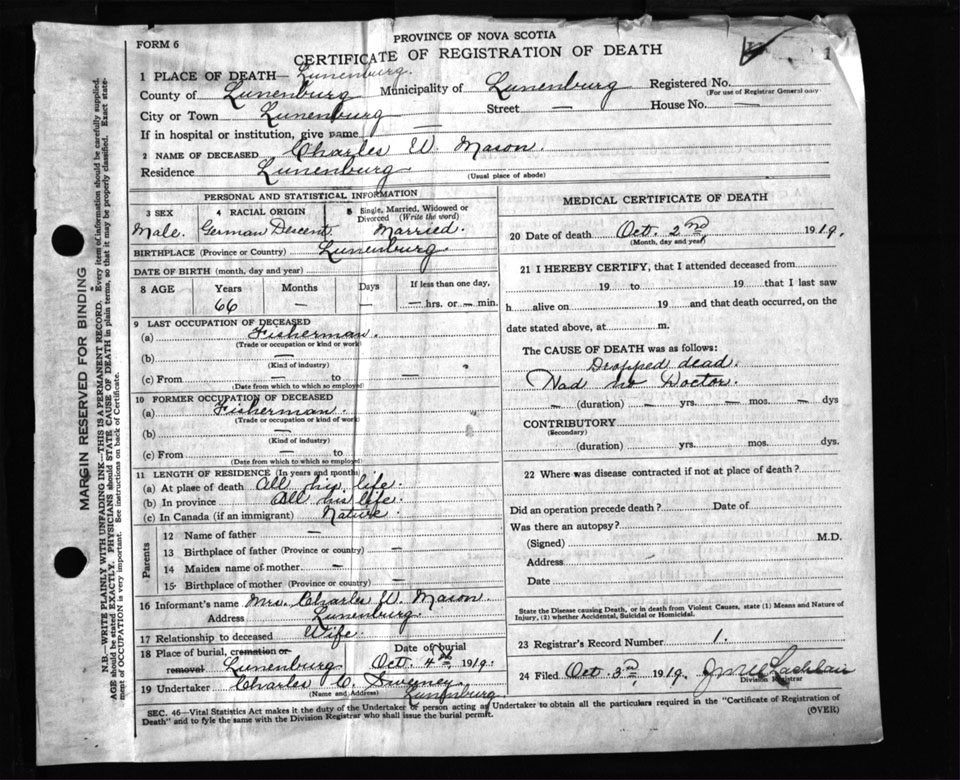 PROVINCE OF NOVA SCOTIA
FORM 6
CERTIFICATE OF REGISTRATION OF DEATH
1
1 PLACE OF DEATH— Lunenburg.
County of Lunenburg Municipality of Lunenburg Registered No.
(For use of Registrar General only)
City or Town Lunenburg Street — House No. —
If in hospital or institution, give name —
2 NAME OF DECEASED Charles W. Mason.
Residence Lunenburg
(Usual place of abode)
MARGIN RESERVED FOR BINDING
N.B.—WRITE PLAINLY WITH UNFADING INK—THIS IS A PERMANENT RECORD. Every item of information should be carefully supplied.
AGE should be stated EXACTLY. PHYSICIANS should STATE CAUSE OF DEATH in plain terms, so that it may be properly classified. Exact state-
ment of OCCUPATION is very important. See instructions on back of Certificate.
PERSONAL AND STATISTICAL INFORMATION
3 SEX 4 RACIAL ORIGIN 5 Single, Married, Widowed or
Divorced (Write the word)
Male. German Descent. Married.
BIRTHPLACE (Province or Country) Lunenburg.
DATE OF BIRTH (month, day and year)
8 AGE Years Months Days If less than one day,
66 — — — hrs. or — min.
9 LAST OCCUPATION OF DECEASED
(a) Fisherman.
(Trade or occupation or kind or work)
(b) —
(Kind of industry)
(c) From — to —
(Date from which to which so employed)
10 FORMER OCCUPATION OF DECEASED
(a) Fisherman.
(Trade or occupation or kind of work)
(b) —
(Kind of industry)
(c) From — to
(Date from which to which so employed)
11 LENGTH OF RESIDENCE (In years and months)
(a) At place of death All his life.
(b) In province All his life.
(c) In Canada (if an immigrant) Native
Parents
12 Name of father —
13 Birthplace of father (Province or country) —
14 Maiden name of mother —
15 Birthplace of mother (Province or country) —
16 Informant's name Mrs. Charles W. Mason.
Address Lunenburg.
17 Relationship to deceased Wife.
18 Place of burial, cremation or removal Lunenburg Date of burial Oct. 4th 1919.
19 Undertaker Charles C. Sweeney.
(Name and Address) Lunenburg.
MEDICAL CERTIFICATE OF DEATH
20 Date of death Oct. 2nd 1919.
(Month, day and year)
21 I HEREBY CERTIFY, that I attended deceased from
19 to 19 that I last saw
h alive on 19 and that death occurred, on the
date stated above, at m.
The CAUSE OF DEATH was as follows:
Dropped dead.
Had no Doctor.
— (duration) — yrs. — mos. — dys
CONTRIBUTORY
(Secondary)
(duration) yrs. mos. dys.
22 Where was disease contracted if not at place of death?
Did an operation precede death? Date of
Was there an autopsy?
(Signed) M.D.
Address
Date
State the Disease causing Death, or in death from Violent Causes, state (1) Means and Nature of
Injury, (2) whether Accidental, Suicidal or Homicidal.
23 Registrar's Record Number 1.
24 Filed Oct 3rd, 1919,
Division Registrar
SEC. 46—Vital Statistics Act makes it the duty of the Undertaker or person acting as Undertaker to obtain all the particulars required in the "Certificate of Registration of
Death" and to fyle the same with the Division Registrar who shall issue the burial permit.
(OVER)